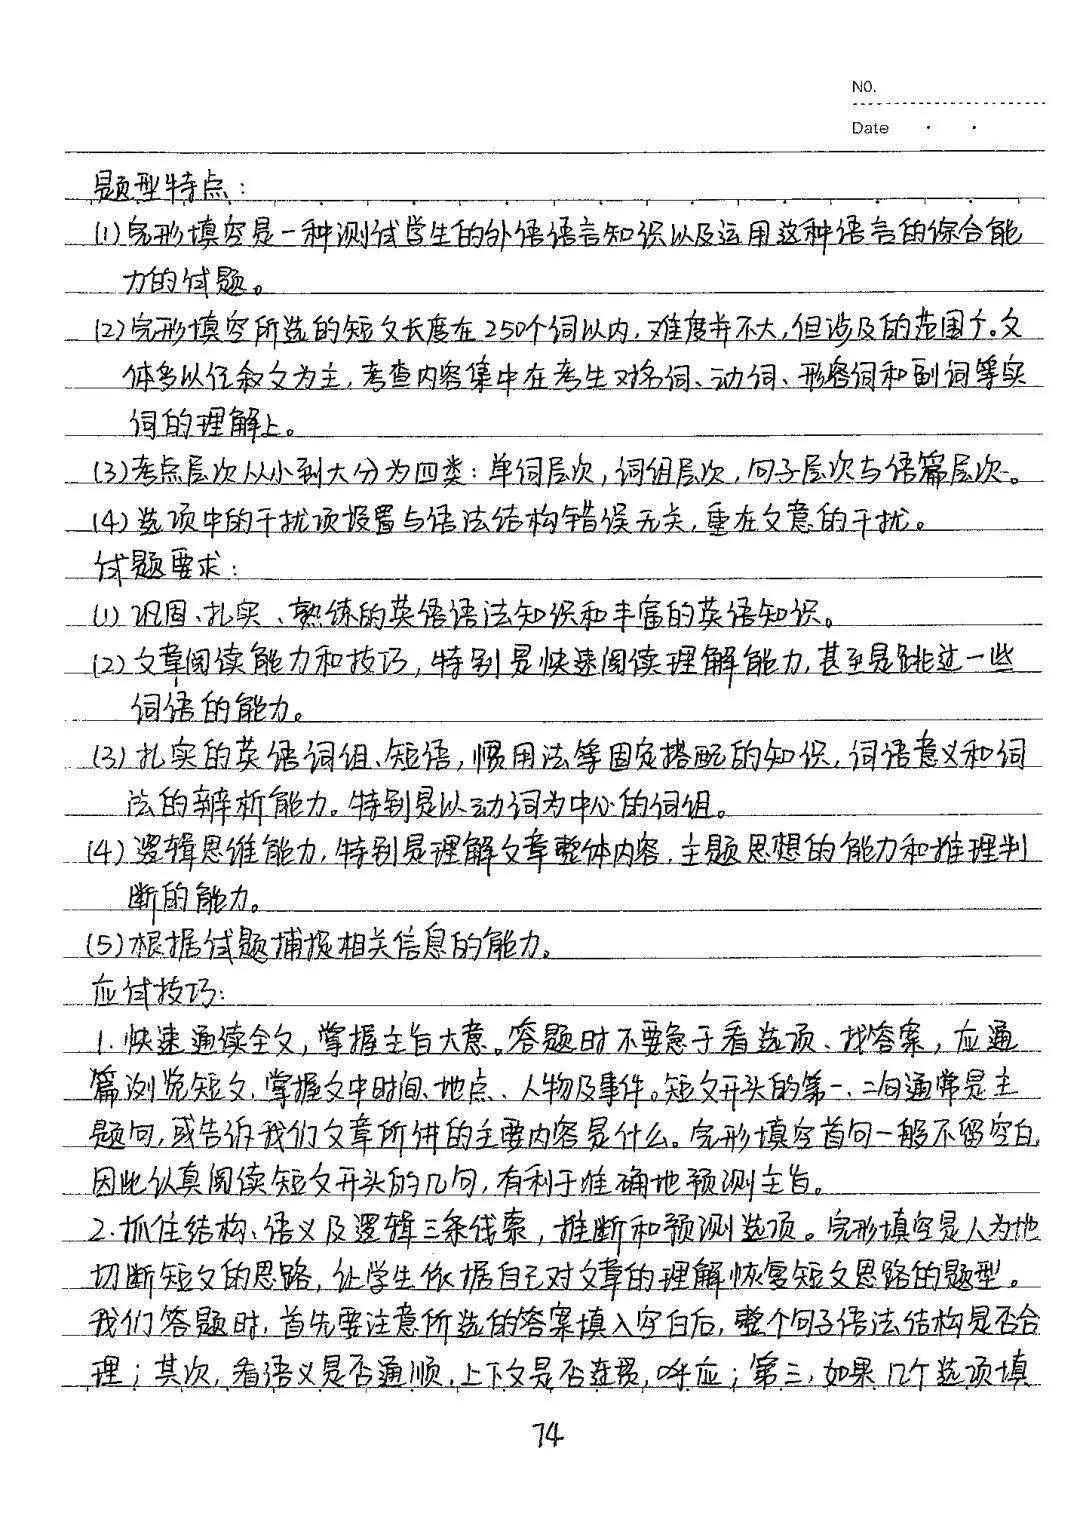 NO.
Date
题型特点:
(1)完形填空是一种测试学生的外语语言知识以及运用这种语言的综合能
力的试题。
(2)完形填空所选的短文长度在250个词以内,难度并不大,但涉及的范围广。文
体多以记叙文为主,考查内容集中在考生对名词、动词、形容词和副词等实
词的理解上。
(3)考点层次从小到大分为四类:单词层次,词组层次,句子层次与语篇层次。
(4)选项中的干扰项设置与语法结构错误无关,重在文意的干扰。
试题要求:
(1)巩固、扎实、熟练的英语语法知识和丰富的英语知识。
(2)文章阅读能力和技巧,特别是快速阅读理解能力,甚至是跳过一些
词语的能力。
(3)扎实的英语词组、短语,惯用法等固定搭配的知识,词语意义和词
法的辨析能力。特别是以动词为中心的词组。
(4)逻辑思维能力,特别是理解文章整体内容,主题思想的能力和推理判
断的能力。
(5)根据试题捕捉相关信息的能力。
应试技巧:
1.快速通读全文,掌握主旨大意。答题时不要急于看选项、找答案,应通
篇浏览短文,掌握文中时间、地点、人物及事件。短文开头的第一、二句通常是主
题句,或告诉我们文章所讲的主要内容是什么。完形填空首句一般不留空白,
因此认真阅读短文开头的几句,有利于准确地预测主旨。
2.抓住结构、语义及逻辑三条线索,推断和预测选项。完形填空是人为地
切断短文的思路,让学生依据自己对文章的理解恢复短文思路的题型。
我们答题时,首先要注意所选的答案填入空白后,整个句子语法结构是否合
理;其次,看语义是否通顺,上下文是否连贯,呼应;第三,如果几个选项填
74